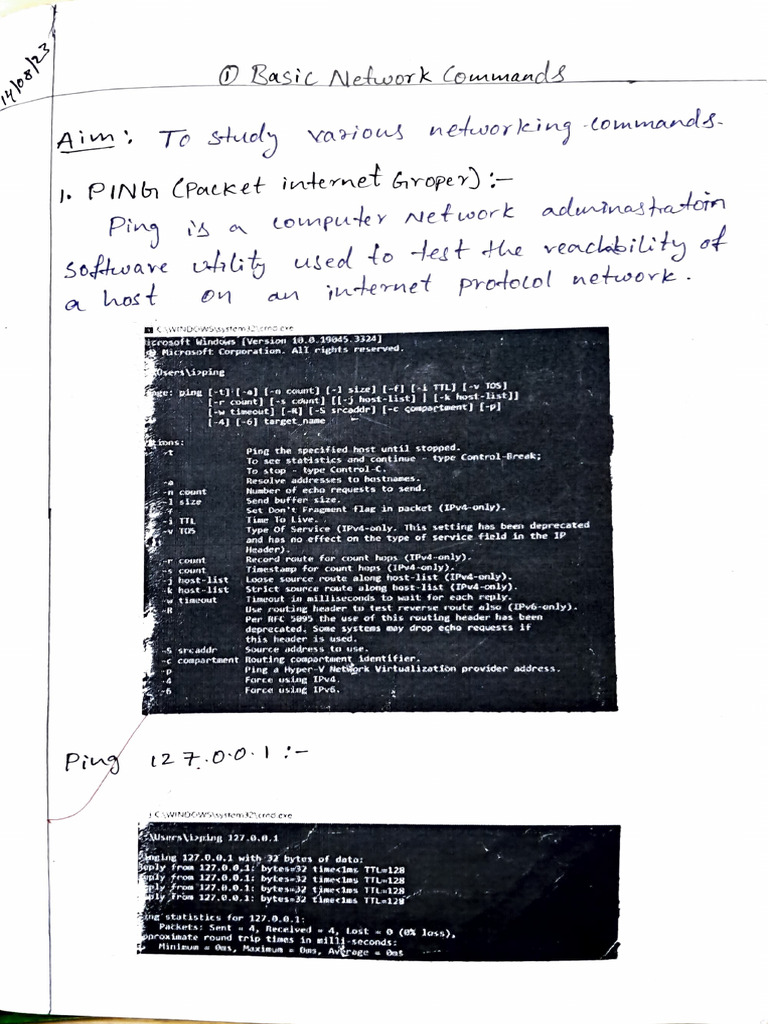 14/08/23
① Basic Network Commands
Aim: To study various networking commands.
1. PING (Packet internet Groper) :-
Ping is a computer Network adminastratoin
software utility used to test the reachbility of
a host on an internet protocol network.
C:\WINDOWS\system32\cmd.exe
icrosoft Windows [Version 10.0.19045.3324]
Microsoft Corporation. All rights reserved.
Users\i>ping
ge: ping [-t] [-a] [-n count] [-l size] [-f] [-i TTL] [-v TOS]
[-r count] [-s count] [[-j host-list] | [-k host-list]]
[-w timeout] [-R] [-S srcaddr] [-c compartment] [-p]
[-4] [-6] target_name
tions:
-t Ping the specified host until stopped.
To see statistics and continue - type Control-Break;
To stop - type Control-C.
-a Resolve addresses to hostnames.
-n count Number of echo requests to send.
-l size Send buffer size.
f Set Don't Fragment flag in packet (IPv4-only).
-i TTL Time To Live.
-v TOS Type Of Service (IPv4-only. This setting has been deprecated
and has no effect on the type of service field in the IP
Header).
-r count Record route for count hops (IPv4-only).
s count Timestamp for count hops (IPv4-only).
j host-list Loose source route along host-list (IPv4-only).
k host-list Strict source route along host-list (IPv4-only).
w timeout Timeout in milliseconds to wait for each reply.
R Use routing header to test reverse route also (IPv6-only).
Per RFC 5095 the use of this routing header has been
deprecated. Some systems may drop echo requests if
this header is used.
-S srcaddr Source address to use.
-c compartment Routing compartment identifier.
-p Ping a Hyper-V Network Virtualization provider address.
-4 Force using IPv4.
-6 Force using IPv6.
Ping 127.0.0.1 :-
C:\WINDOWS\system32\cmd.exe
\Users\i>ping 127.0.0.1
nging 127.0.0.1 with 32 bytes of data:
eply from 127.0.0.1: bytes=32 time<1ms TTL=128
eply from 127.0.0.1: bytes=32 time<1ms TTL=128
ply from 127.0.0.1: bytes=32 time<1ms TTL=128
eply from 127.0.0.1: bytes=32 time<1ms TTL=128
ng statistics for 127.0.0.1:
Packets: Sent = 4, Received = 4, Lost = 0 (0% loss),
proximate round trip times in milli-seconds:
Minimum = 0ms, Maximum = 0ms, Average = 0ms